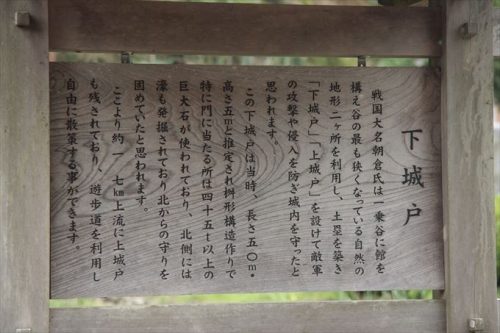 下城戸
戦国大名朝倉氏は一乗谷に館を
構え谷の最も狭くなっている自然の
地形二ヶ所を利用し、土塁を築き
「下城戸」「上城戸」を設けて敵軍
の攻撃や侵入を防ぎ城内を守ったと
思われます。
この下城戸は当時、長さ五〇m・
高さ五mと推定され桝形構造作りで
特に門に当たる所は四十五t以上の
巨大石が使われており、北側には
濠も発掘されており北からの守りを
固めていたと思われます。
ここより約一・七km上流に上城戸
も残されており、遊歩道を利用し
自由に散策する事ができます。